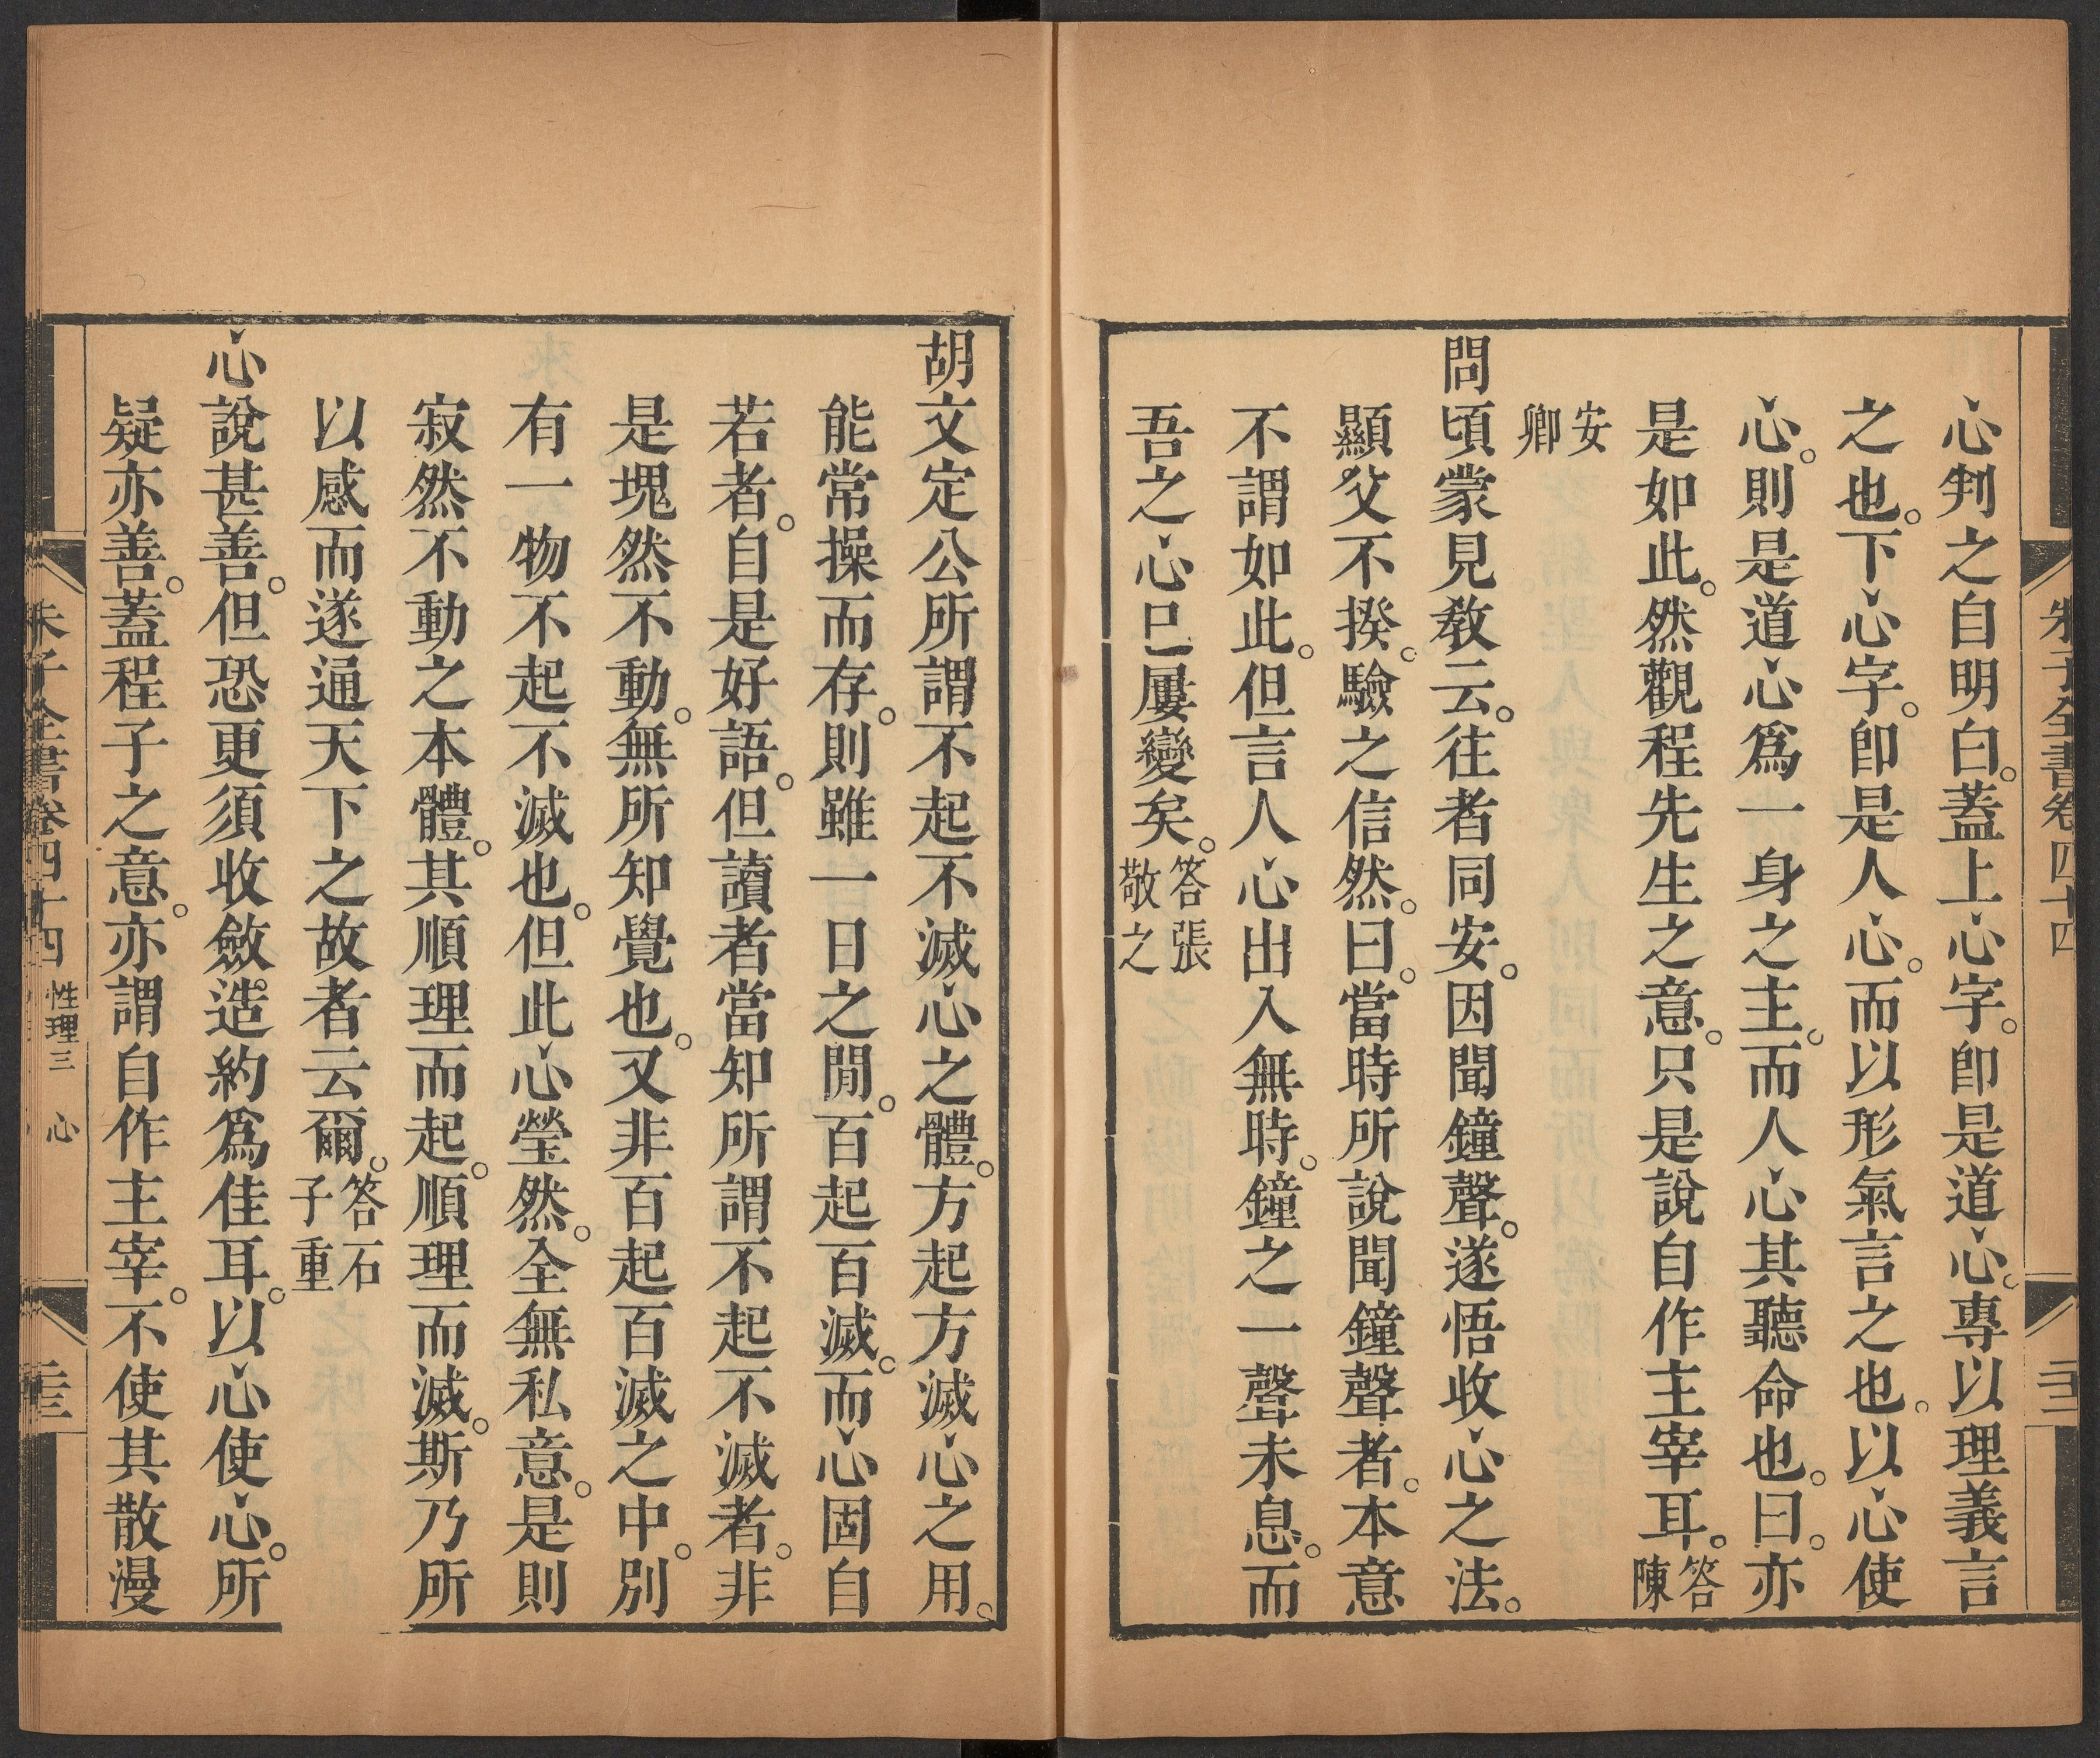 朱子全書卷四十四
心判之自明白。蓋上心字。卽是道心。專以理義言
之也。下心字。卽是人心。而以形氣言之也。以心使
心。則是道心爲一身之主。而人心其聽命也。曰。亦
是如此。然觀程先生之意。只是說自作主宰耳。答陳
安卿
問頃蒙見敎云。往者同安。因聞鐘聲。遂悟收心之法。
顯父不揆。驗之信然。曰。當時所說聞鐘聲者。本意
不謂如此。但言人心出入無時。鐘之一聲未息。而
吾之心已屢變矣。答張敬之
胡文定公所謂不起不滅心之體。方起方滅心之用。
能常操而存。則雖一日之閒。百起百滅。而心固自
若者。自是好語。但讀者當知所謂不起不滅者。非
是塊然不動。無所知覺也。又非百起百滅之中。別
有一物不起不滅也。但此心瑩然。全無私意。是則
寂然不動之本體。其順理而起。順理而滅。斯乃所
以感而遂通天下之故者云爾。答石子重
心說甚善。但恐更須收斂造約爲佳耳。以心使心。所
疑亦善。蓋程子之意。亦謂自作主宰。不使其散漫
朱子全書卷四十四 性理三 心